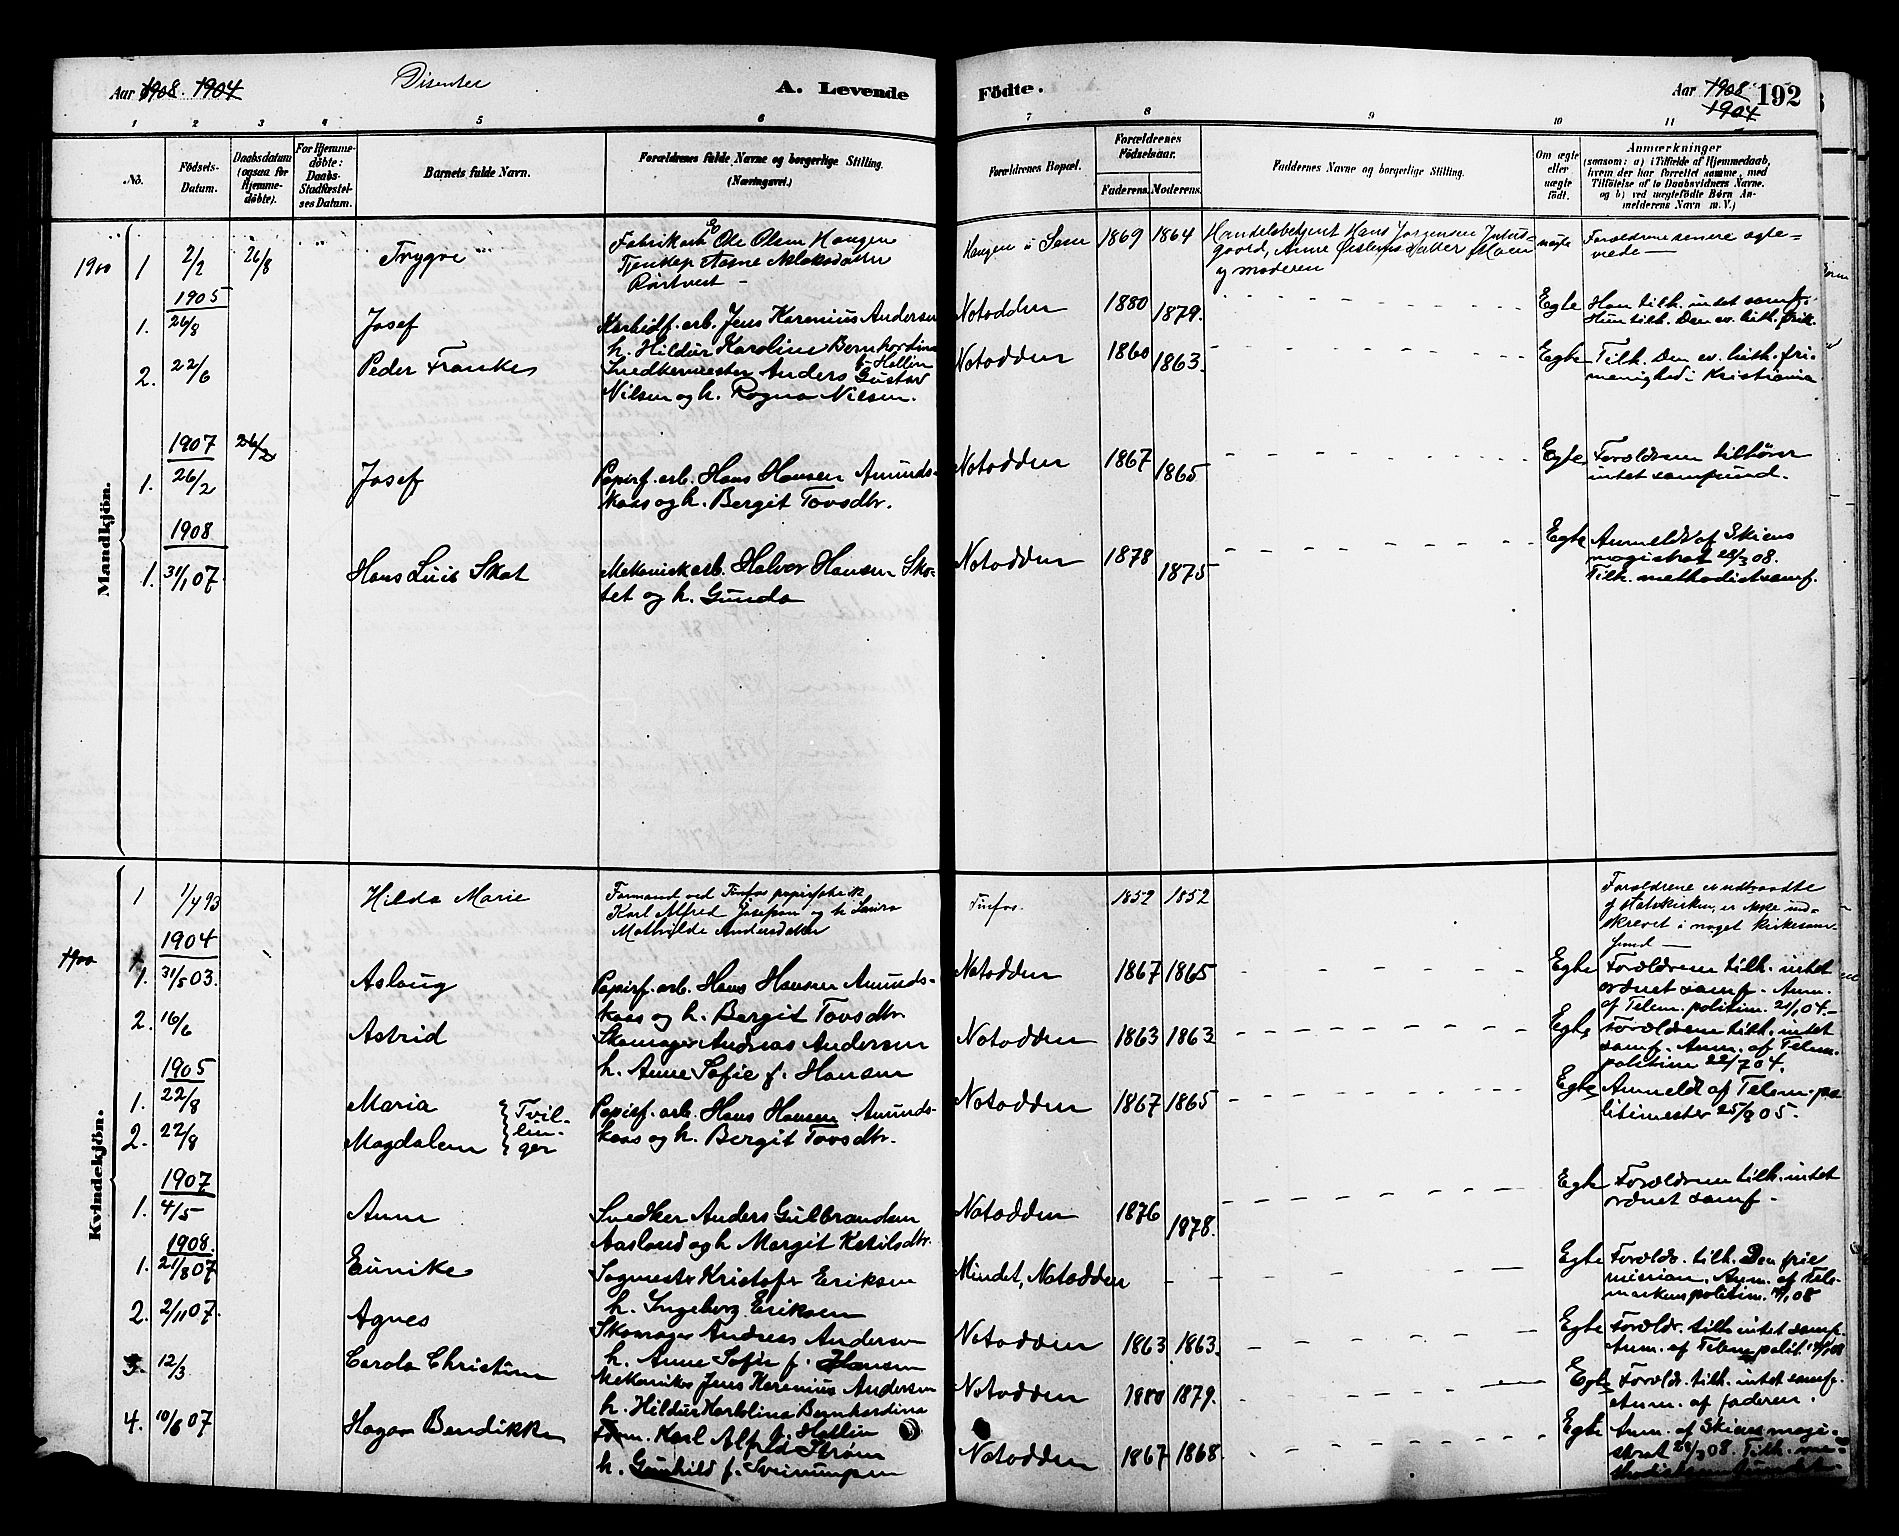 Aar 1908. 1904
Disenter
A. Levende
Födte.
Aar 1908.
1904
192
1 2 3 4 5 6 7 8 9 10 11
No.
Födsels-
Datum.
Daabsdatum
(ogsaa for
Hjemme-
döbte).
For Hjemme-
döbte:
Daabs-
Stadfæstel-
ses Datum.
Barnets fulde Navn.
Forældrenes fulde Navne og borgerlige Stilling.
(Næringsvei.)
Forældrenes Bopæl.
Forældrenes
Födselsaar.
Faderens. Moderens.
Faddernes Navne og borgerlige Stilling.
Om ægte
eller
uægte
födt.
Anmærkninger
(saasom: a) i Tilfælde af Hjemmedaab,
hvem der har forrettet samme, med
Tilföielse af to Daabsvidners Navne.
og b) ved uægtefödte Börn An-
melderens Navn m. V.)
Mandkjön.
1900 1 2/2 26/8 Trygve
Fabrikarb. Ole Olsen Haugen
Tjenestep. Aasne Aslaksdatter
Rørtveit
Haugen i Sem 1869 1864
Handelsbetjent Hans Jørgensen
gaard, Anne
og moderen
uægte
Forældrene senere ægte-
viede
1905
1. 26/8 Josef
Karbidf. arb. Jens Karenius Andersen
h. Hildur Karoline Bernhardina
f. Hallin
Notodden 1880 1879.
Egte
Han tilh. intet samf.
Hun tilh. Den ev. luth. frik.
2. 22/6 Peder Franke
Snedkermester Anders Gustav
Nilsen og h. Ragna Nilsen.
Notodden 1860 1863.
Egte
Tilh. Den ev. luth. fri-
menighed i Kristiania
1907 26/2
1. 26/2 Josef
Papirf. arb. Hans Hansen Amunds-
kaas og h. Bergit Tovsdtr.
Notodden 1867 1865
Egte
Forældrene tilhører
intet samfund.
1908
1. 31/1 07. Hans Luis Skat
Mekanisk arb. Halvor Hansen Ska-
tet og h. Gunda
Notodden 1878 1875
Egte
Anmeldt af Skiens
magistrat 28/3 08.
Tilh. methodistsamf.
Kvindekjön.
1 1/4 93 Hilda Marie
Formand ved Tinfos papirfabrik
Karl Alfred Josefsen og h. Laura
Mathilde Andersdatter
Tinfos. 1852 1852
Forældrene er udtraadte
af statskirken, er ikke ind-
skrevet i noget kirkesam-
fund
1900
1904
1. 31/5 03. Aslaug
Papirf. arb. Hans Hansen Amunds-
kaas og h. Bergit Tovsdtr.
Notodden 1867 1865
Egte
Forældrene tilh. intet
ordnet samf. Anm.
af Telem. politim. 21/1 04.
2. 16/6 Astrid
Skomager Andreas Andersen
h. Anne Sofie f. Hansen
Notodden 1863 1863
Egte
Forældrene tilh. intet
samf. Anm. af Telem.
politim 22/7 04.
1905
1. 22/8 Maria
2. 22/8 Magdalene
Tvil-
lin-
ger
Papirf. arb. Hans Hansen Amunds-
kaas og h. Bergit Tovsdtr.
Notodden 1867 1865
Egte
Anmeldt af Telem. po-
litimester 25/9 05.
1907
1. 4/5 Anne
Snedker Anders Gulbrandsen
Aasland og h. Margit Ketilsdtr.
Notodden 1876 1878.
Egte
Forældrene tilh. intet
ordnet samf.
1908.
1. 21/8 07 Eunike
Sagmester Kristofer Eriksen
h. Ingeborg Eriksen
Mindet, Notodden
Egte
Forældr. tilh. Den frie
mission. Anm. af Tele-
markens politim. 08
2. 2/11 07. Agnes
Skomager Andreas Andersen
h. Anne Sofie f. Hansen
Notodden 1863 1863.
Egte
Forældr. tilh. intet samf.
Anm. af Telem. polit. 08
3. 12/3 Carola Christine
Mekaniker Jens Karenius Andersen
h. Hildur Karolina Bernhardina
f. Hallin
Notodden 1880 1879.
Egte
Forældr. tilh. intet samf.
Anm. af faderen.
4. 10/6 07 Hagar Bendikke
Form. Karl Alfred Strøm
h. Gunhild f. Sveinungsen
Notodden 1867 1868.
Egte
Anm. af Skiens magi-
strat 28/3 08. Tilh. me-